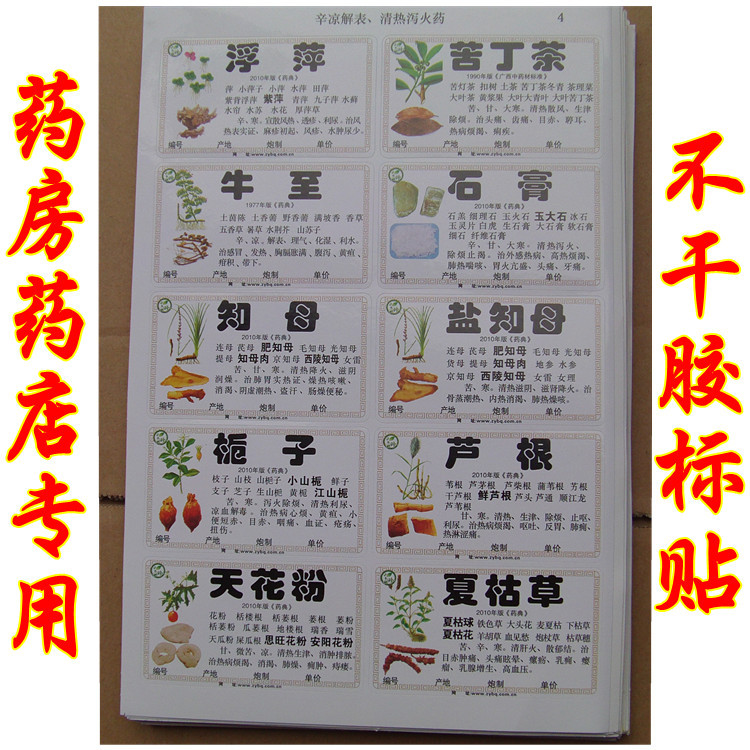 药房药店专用
不干胶标贴
辛凉解表、清热泻火药
4
浮萍
2010年版《药典》
萍 小萍子 小萍 水萍 田萍
紫背浮萍 紫萍 青萍 九子萍 水藓
水帘 水苏 水花 厚萍草
辛、寒。宣散风热、透疹、利尿、治风
热表实证、麻疹初起、风疹、水肿尿少。
编号 产地 炮制 单价
网 址:www.zybq.com.cn
苦丁茶
1990年版《广西中药材标准》
苦灯茶 扣树 土茶 苦丁茶冬青 茶理菜
大叶茶 黄浆果 大叶大青叶 大叶苦丁茶
苦、甘、大寒。清热散风、生津
除烦。治头痛、齿痛、目赤、聤耳、
热病烦渴、痢疾。
编号 产地 炮制 单价
网 址:www.zybq.com.cn
牛至
1977年版《药典》
土茵陈 土香薷 野香薷 满坡香 香草
五香草 暑草 水荆芥 山苏子
辛、凉、解表、理气、化湿、利水。
治感冒、发热、胸膈胀满、腹泻、黄疸、
疳积、带下。
编号 产地 炮制 单价
网 址:www.zybq.com.cn
石膏
2010年版《药典》
石羔 细理石 玉火石 玉大石 冰石
玉灵片 白虎 生石膏 大石膏 软石膏
细石 纤维石膏
辛、甘、大寒。清热泻火、
除烦止渴。治外感热病、高热烦渴、
肺热喘咳、胃火亢盛、头痛、牙痛。
编号 产地 炮制 单价
网 址:www.zybq.com.cn
知母
2010年版《药典》
连母 芪母 肥知母 毛知母 光知母
提母 知母肉 京知母 西陵知母 女雷
苦、甘、寒。清热降火、滋阴
润燥。治肺胃实热证、燥热咳嗽、
消渴、阴虚潮热、盗汗、肠燥便秘。
编号 产地 炮制 单价
盐知母
2010年版《药典》
连母 芪母 肥知母 毛知母 光知母
货母 提母 知母肉 地参 水参
京知母 西陵知母 女雷 女理
苦、寒。清热滋阴、滋肾降火。治
骨蒸潮热、内热消渴、肺热燥咳。
编号 产地 炮制 单价
网 址:www.zybq.com.cn
栀子
2010年版《药典》
枝子 山枝 山栀子 小山栀 鲜子
支子 芝子 生山栀 黄栀 江山栀
苦、寒。泻火除烦、清热利尿、
凉血解毒。治热病心烦、黄疸、小
便短赤、目赤、咽痛、血证、疮疡、
扭伤。
编号 产地 炮制 单价
网 址:www.zybq.com.cn
芦根
2010年版《药典》
苇根 芦茅根 芦柴根 蒲苇根 芳根
干芦根 鲜芦根 芦头 芦通 顺江龙
芦苇根
甘、寒。清热、生津、除烦、止呕、
利尿。治热病烦渴、呕吐、反胃、肺痈、
热淋涩痛。
编号 产地 炮制 单价
网 址:www.zybq.com.cn
天花粉
2010年版《药典》
花粉 栝楼根 栝蒌根 蒌根 蒌粉
栝蒌粉 瓜蒌根 地楼根 瑞香 瑞雪
天瓜粉 屎瓜根 思旺花粉 安阳花粉
甘、微苦、凉。清热生津、消肿排脓。
治热病烦渴、消渴、肺燥、痈肿、痔瘘。
编号 产地 炮制 单价
网 址:www.zybq.com.cn
夏枯草
2010年版《药典》
夏枯球 铁色草 大头花 麦夏枯 下枯草
夏枯花 羊胡草 血见愁 炮杖草 枯草穗
苦、辛、寒。清肝火、散郁结。治
目赤肿痛、头痛眩晕、瘰疬、乳痈、瘿
瘤、乳腺增生、高血压。
编号 产地 炮制 单价
网 址:www.zybq.com.cn